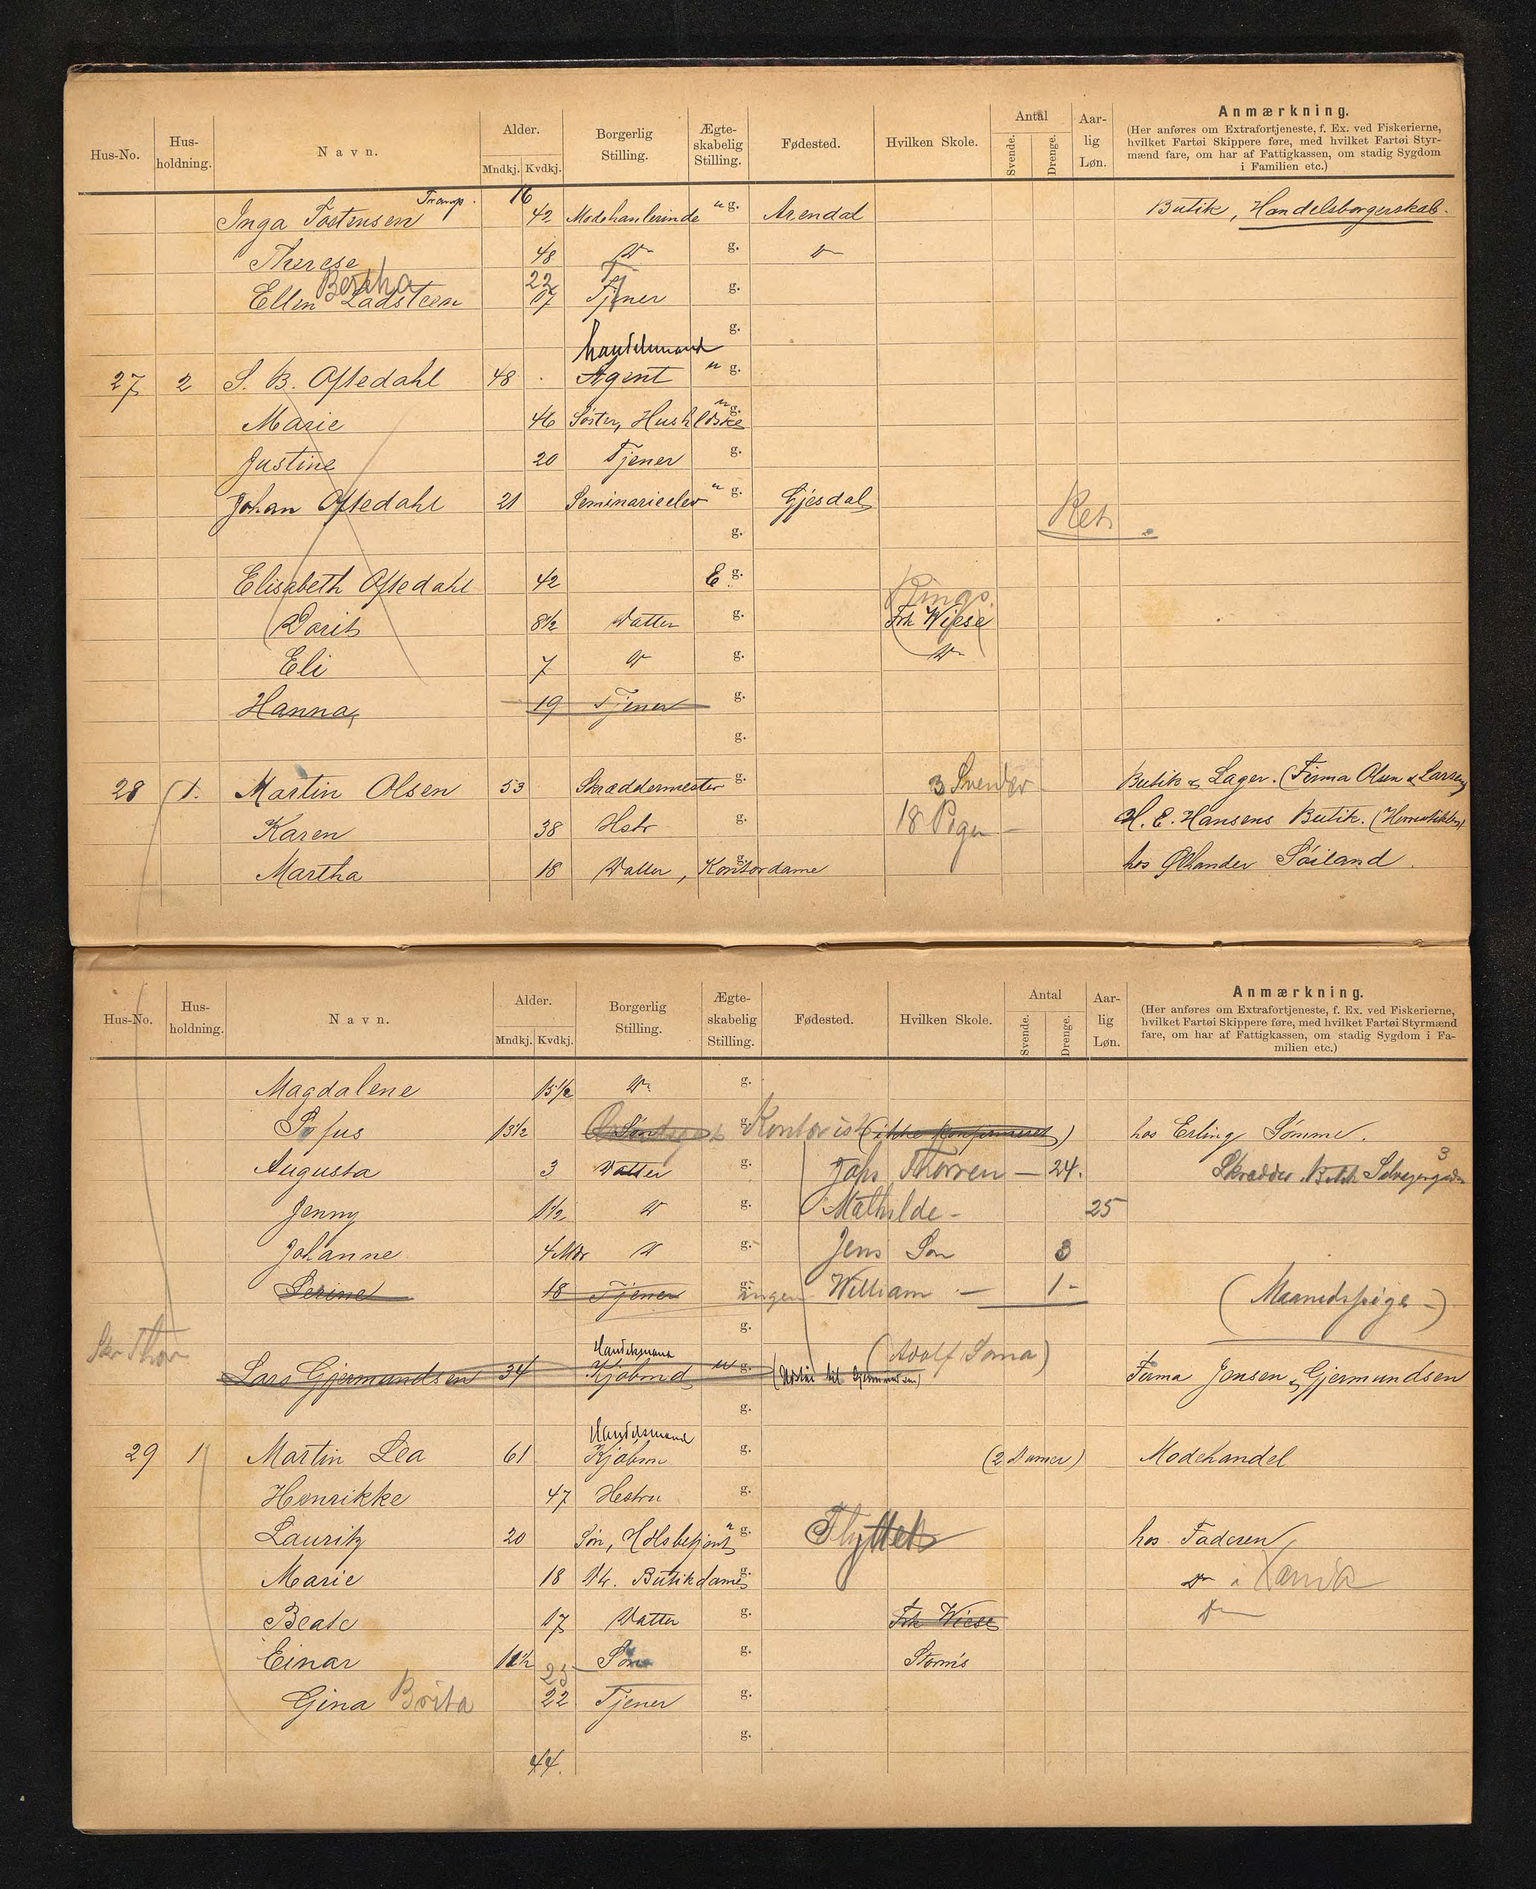 Hus-No. Hus-holdning. Navn. Alder. Mndkj. Kvdkj. Borgerlig Stilling. Ægte-skabelig Stilling. Fødested. Hvilken Skole. Antal Svende. Drenge. Aar-lig Løn. Anmærkning.
(Her anføres om Extrafortjeneste, f. Ex. ved Fiskerierne,
hvilket Fartøi Skippere føre, med hvilket Fartøi Styr-
mænd fare, om har af Fattigkassen, om stadig Sygdom
i Familien etc.)
16
Inga Tostensen 42 Modehanlerinde u g. Arendal Butik, Handelsborgerskab.
Therese 48 Do g. Do
Bertha 22 Tj
Ellen Ladsteen 17 Tjener g.
g.
handelsmand
27 2 S. B. Oftedahl 48 Agent u g.
Marie 46 Søster, Hushldske u g.
Justine 20 Tjener g.
Johan Oftedahl 21 Seminarieelev u g. Gjesdal
Ret
g.
Elisabeth Oftedahl 42 E g.
Rings
Dorit 8½ Datter g. Frk Wiese
Eli 7 D g. Do
Hanna 19 Tjener g.
g.
28 1. Martin Olsen 53 Skræddermester g. 3 Svender Butik & Lager. (Firma Olsen & Larsen)
Karen 38 Hstr g. 18 Piger – H. E. Hansens Butik.
Martha 18 Datter, Kontordame g. hos Søiland
Hus-No. Hus-holdning. Navn. Alder. Mndkj. Kvdkj. Borgerlig Stilling. Ægte-skabelig Stilling. Fødested. Hvilken Skole. Antal Svende. Drenge. Aar-lig Løn. Anmærkning.
(Her anføres om Extrafortjeneste, f. Ex. ved Fiskerierne,
hvilket Fartøi Skippere føre, med hvilket Fartøi Styrmænd
fare, om har af Fattigkassen, om stadig Sygdom i Fa-
milien etc.)
Magdalene 15½ Do g.
Sofus 13½ Søn g. Kontorist (ikke konfirmeret) hos Erling Sømme.
Augusta 3 Datter g. Johs Thorren – 24. Skrædder
Jenny 1½ D g. Mathilde – 25
Johanne 4 Mdr D g. Jens Søn 3
Serine 18 Tjener g. ingen William – 1 – (Maanedspige –)
g.
Skr Thor
Handelsmand (Adolf Soma)
Lars Gjermundsen 34 Kjøbmd u g. Firma Jensen & Gjermundsen
g.
Handelsmand
29 1 Martin Lea 61 Kjøbm g. (2 Damer) Modehandel
Henrikke 47 Hestru g.
Lauritz 20 Søn, Hdlsbetjent u g. Flyttet hos Faderen
Marie 18 Dt. Butikdame g. Do
Beate 17 Datter g. Frk Wiese Do
Einar 11½ Søn g. Storm's
25
Gina Brita 22 Tjener g.
g.
44.